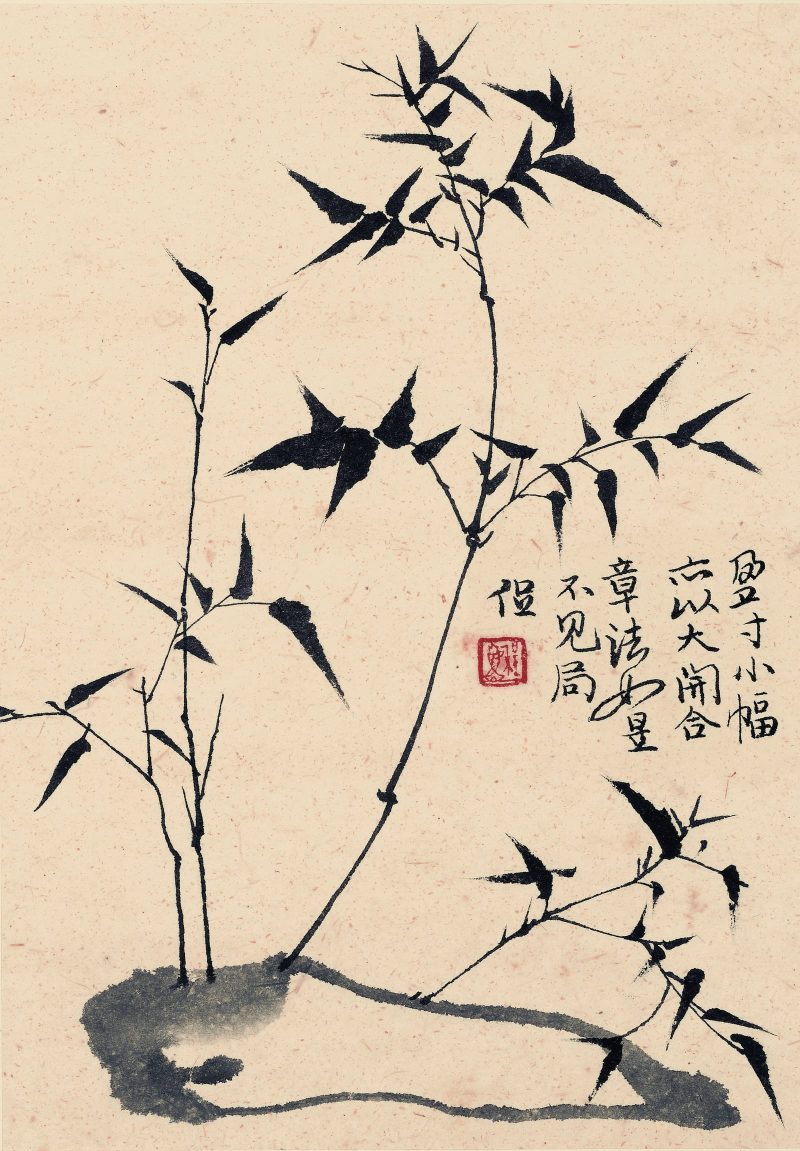 盈寸小幅
亦以大開合
章法如是
不见局
侣